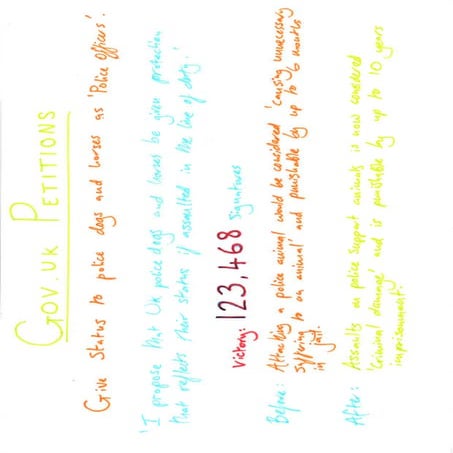 GOV.UK PETITIONS
Give Status to police dogs and horses as 'Police Officers'.
'I propose that UK police dogs and horses be given protection
that reflects their status if assaulted in the line of duty.'
Victory: 123,468 signatures
Before: Attacking a police animal would be considered 'causing unnecessary
suffering to an animal' and punishable by up to 6 months
in jail.
After: Assaults on police support animals is now considered
'Criminal damage' and is punishable by up to 10 years
imprisonment.